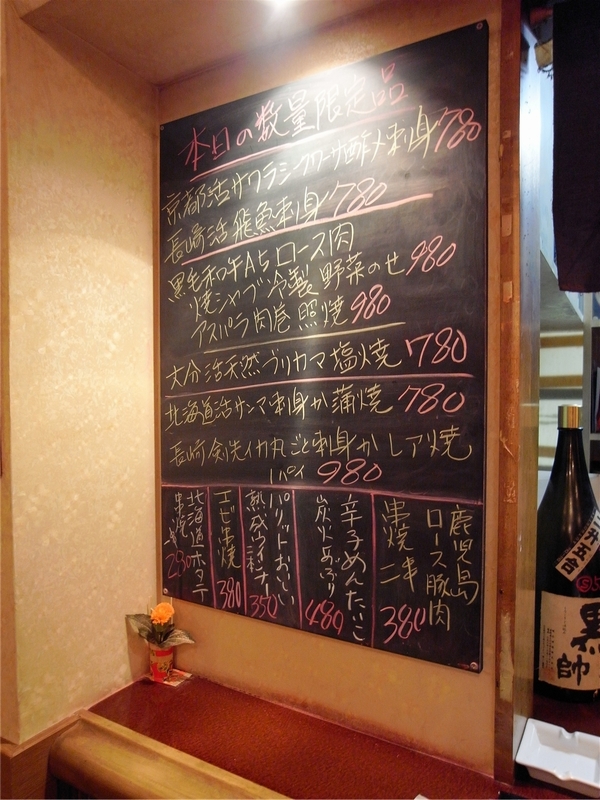 本日の数量限定品
京都活サワラシークワーサ酢〆刺身780
長崎活飛魚刺身780
黒毛和牛A5ロース肉
焼シャブ冷製野菜のせ980
アスパラ肉巻照焼980
大分活天然ブリカマ塩焼780
北海道活サンマ刺身か蒲焼780
長崎剣先イカ丸ごと刺身かレア焼
1パイ980
鹿児島
ロース豚肉
串焼二串
380
辛子めんたいこ
炭火あぶり
480
パリットおいしい
熟成ウインナー
350
エビ串焼
380
北海道ホタテ
串焼
280
二十五合
黒
帥